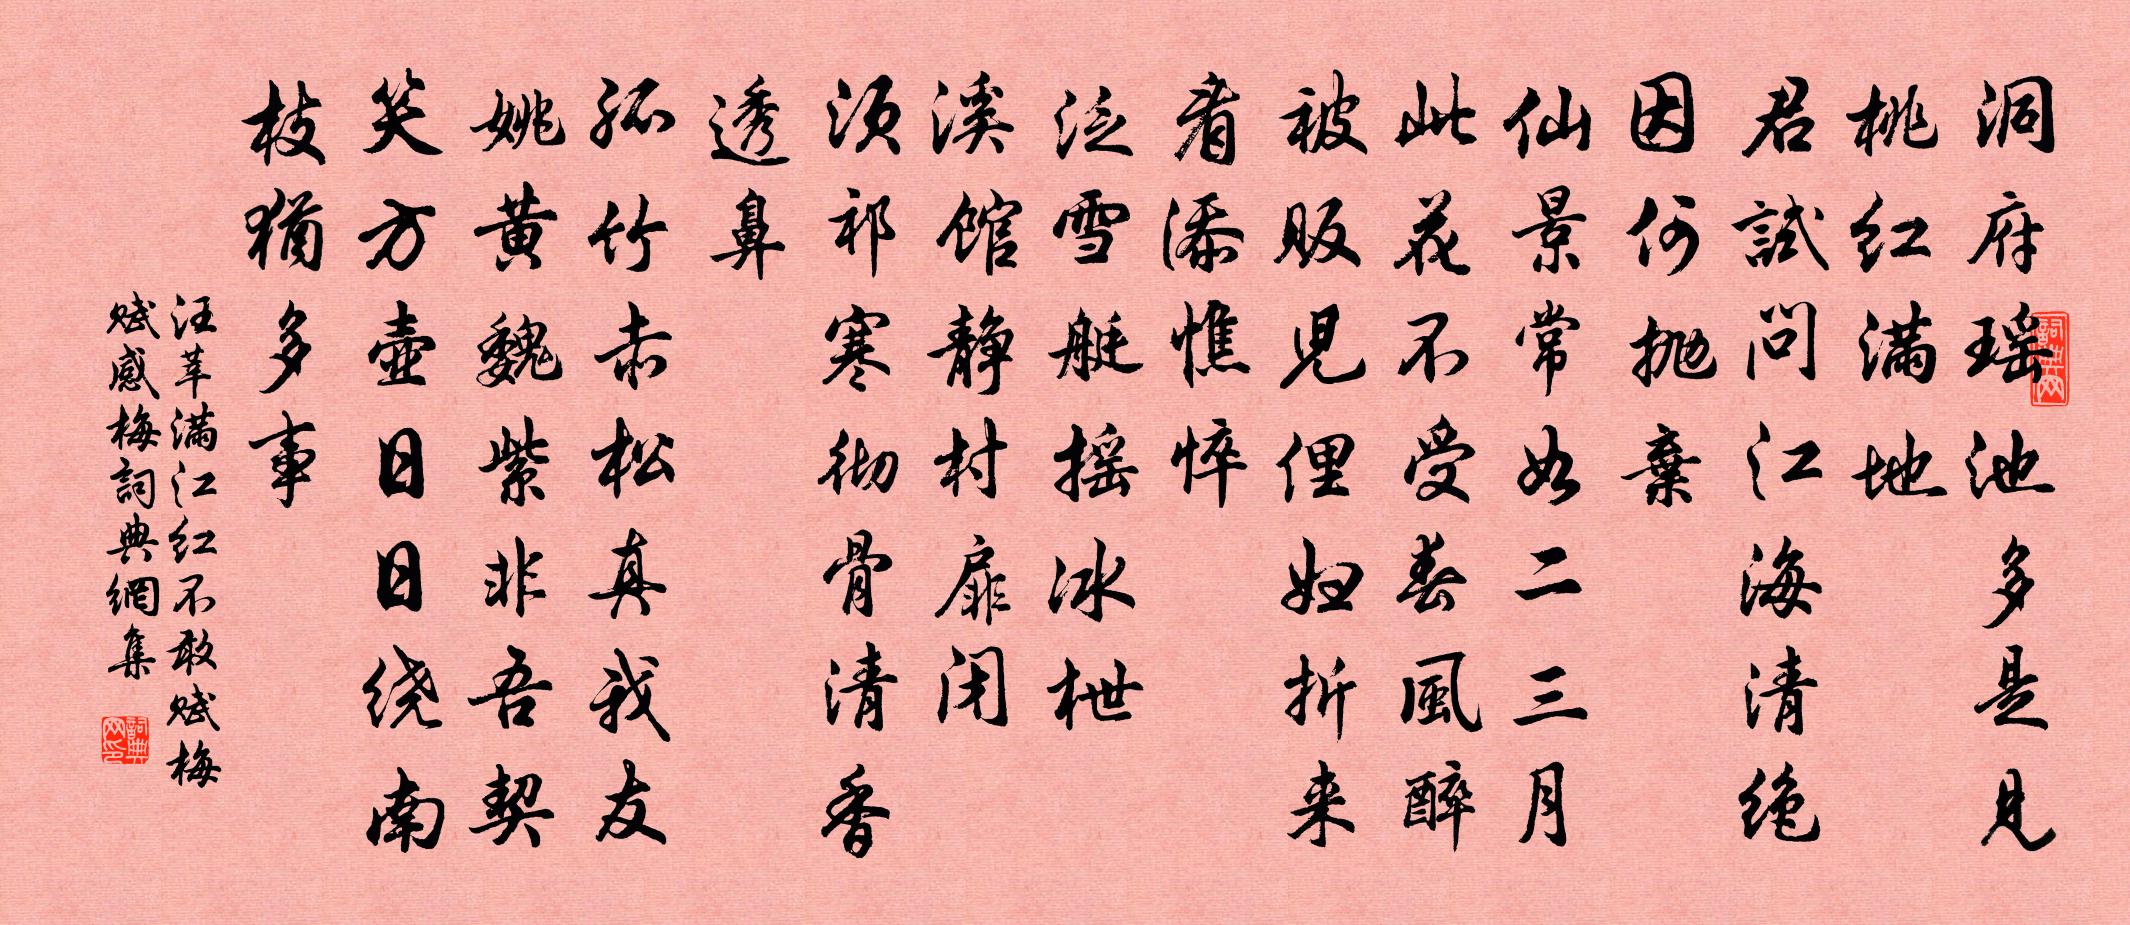 洞府瑶池多是见
桃红满地
君试问江海清绝
因何抛弃
仙景常如二三月
此花不受春風醉
被贩児俚妇折来
看添憔悴
泛雪艇摇冰枻
溪馆静村扉闭
须祁寒彻骨清香
透鼻
孤竹赤松真我友
姚黄魏紫非吾契
笑方壶日日绕南
枝犹多事
汪莘满江红不敢赋梅
赋感梅詞典網集